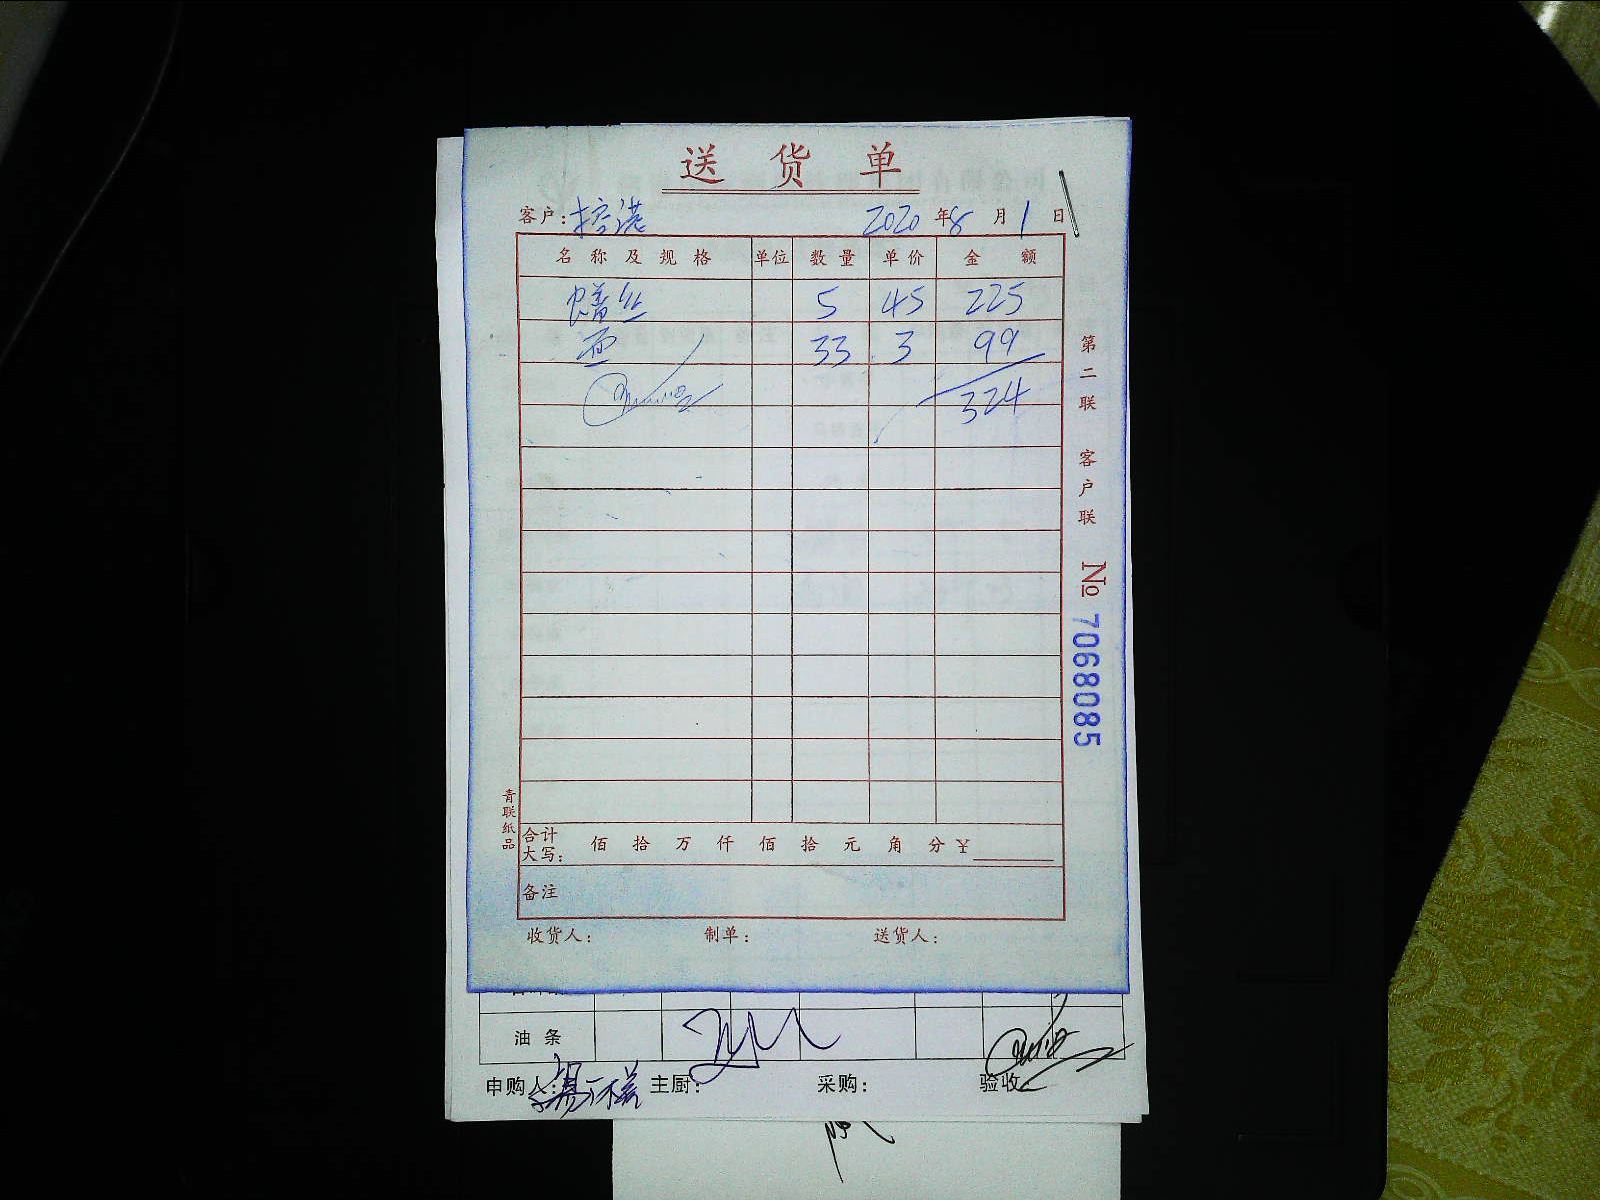 送货单
客户: 榕港 2020 年 8 月 1 日
名称及规格 单位 数量 单价 金额
鳝丝 5 45 225
面 33 3 99
324
第二联 客户联 № 7068085
青联纸品
合计大写: 佰 拾 万 仟 佰 拾 元 角 分 ¥
备注
收货人: 制单: 送货人:
油条
申购人: 主厨: 采购: 验收